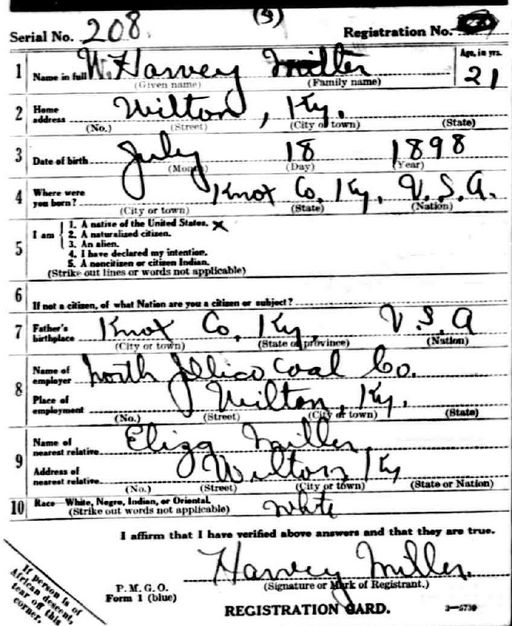 (3)
Serial No. 208 Registration No.
1 Name in full W. Harvey Miller Age, in yrs. 21
(Given name) (Family name)
2 Home address Wilton, Ky.
(No.) (Street) (City or town) (State)
3 Date of birth July 18 1898
(Month) (Day) (Year)
4 Where were you born? Knox Co. Ky, U.S.A.
(City or town) (State) (Nation)
5 I am 1. A native of the United States. x
2. A naturalized citizen.
3. An alien.
4. I have declared my intention.
5. A noncitizen or citizen Indian.
(Strike out lines or words not applicable)
6 If not a citizen, of what Nation are you a citizen or subject?
7 Father's birthplace Knox Co, Ky, U.S.A
(City or town) (State or province) (Nation)
8 Name of employer North Jellico Coal Co.
Place of employment Wilton, Ky.
(No.) (Street) (City or town) (State)
9 Name of nearest relative Eliza Miller
Address of nearest relative Wilton Ky
(No.) (Street) (City or town) (State or Nation)
10 Race—White, Negro, Indian, or Oriental. White
(Strike out words not applicable)
I affirm that I have verified above answers and that they are true.
Harvey Miller.
P. M. G. O. (Signature or Mark of Registrant.)
Form 1 (blue)
REGISTRATION CARD. 3—5739
If person is of
African descent,
tear off this
corner.